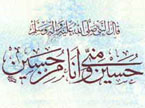 قال النبي صلى الله عليه وآله وسلم
حسين مني وأنا من حسين